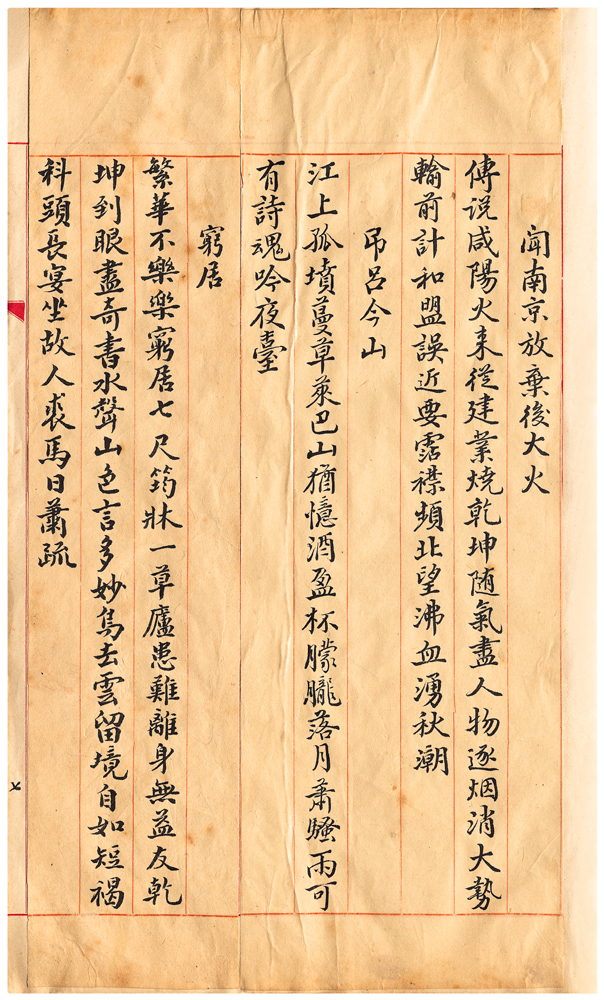 聞南京放棄後大火
傳说咸陽火来從建業燒乾坤随氣盡人物逐烟消大勢
輸前計和盟誤近要霑襟頻北望沸血湧秋潮
吊呂今山
江上孤墳蔓草萊巴山猶憶酒盈杯朦朧落月蕭騷雨可
有詩魂吟夜臺
窮居
繁華不樂樂窮居七尺筠牀一草廬患難離身無益友乾
坤到眼盡奇書水聲山色言多妙鳥去雲留境自如短褐
科頭長宴坐故人裘馬日蕭疏
七